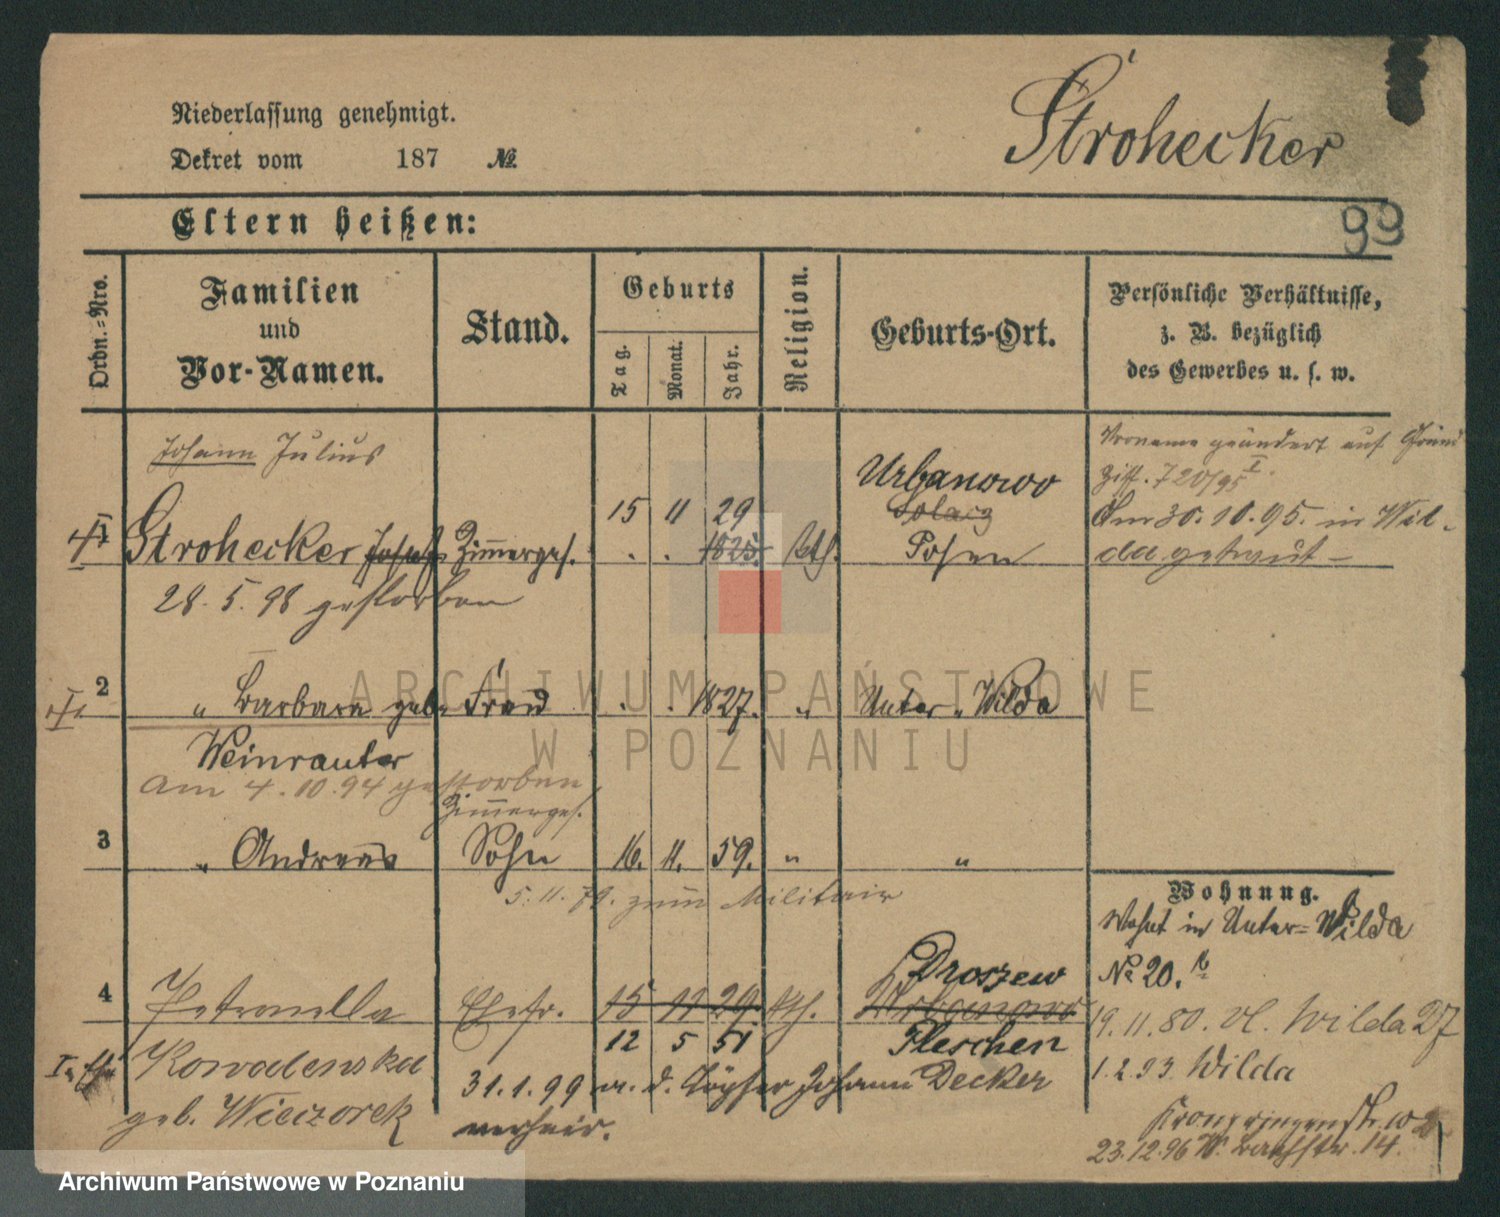 Niederlassung genehmigt.
Dekret vom 187 №
Strohecker
Eltern heißen:
99
Ordn.-Nro.
Familien
und
Vor-Namen.
Stand.
Geburts
Tag.
Monat.
Jahr.
Religion.
Geburts-Ort.
Persönliche Verhältnisse,
z. B. bezüglich
des Gewerbes u. s. w.
Johann Julius
Vorname geändert auf Grund
Ziff. 720/95 I.
1 Strohecker Josef Zimmerges. 15 11 29 1825. kth. Urbanowo Solacz Posen
Am 30.10.95. in Wil-
da getraut –
28.5.98 gestorben
2 " Barbara geb. Frau 1827. " Unter-Wilda
Weinrauter
am 4.10.94 gestorben
Zimmerges.
3 " Andreas Sohn 16. 11. 59. " "
5.11.79. zum Militair
Wohnung.
Wohnt in Unter-Wilda
No 20.
4 Petronella Ehefr. 15 11 29. kth. Droszew Urbanowo
19.11.80. vl. Wilda 27
12 5 51 Pleschen
Kowalenska
1.2.93. Wilda
31.1.99 m. d. Töpfer Johann Decker
geb. Wieczorek
verheir.
Kronprinzenstr.
23.12.96 W. 14.
ARCHIWUM PAŃSTWOWE
W POZNANIU
Archiwum Państwowe w Poznaniu